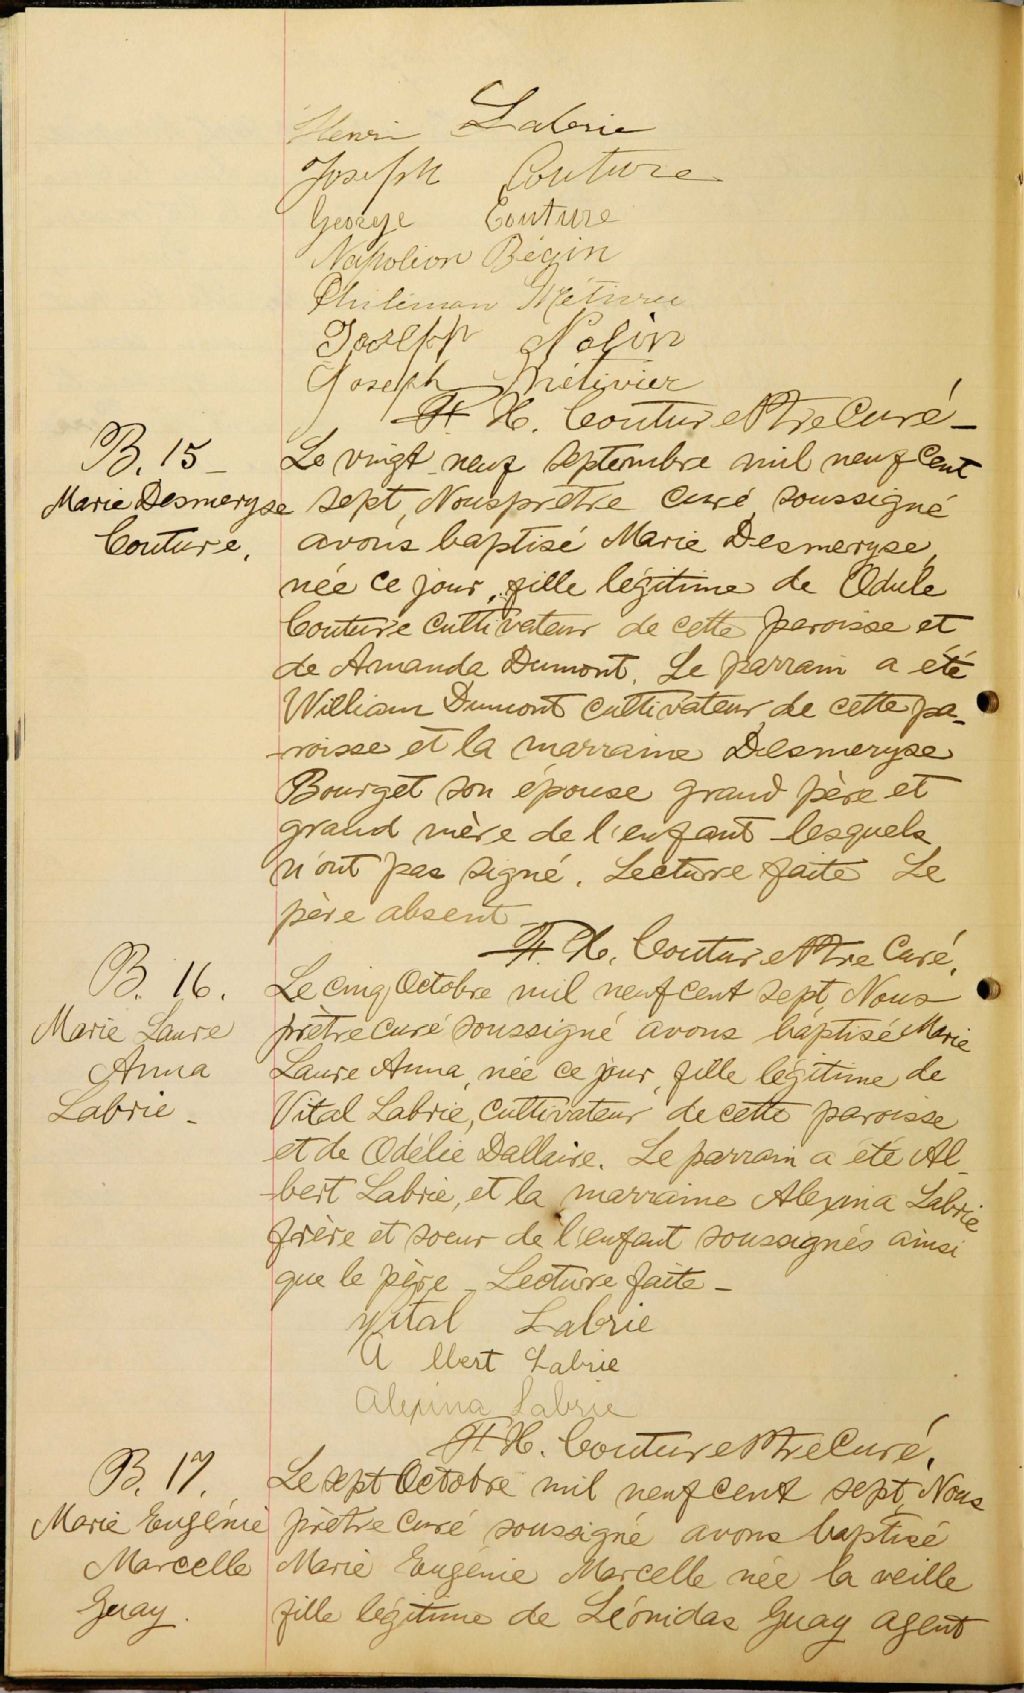 Henri Labrie
Joseph Couture
George Couture
Napoléon Bégin
Philémon Métivier
Joseph Nolin
Joseph Métivier
F. X. Couture Ptre Curé
B. 15
Marie Desmeryse
Couture.
Le vingt neuf septembre mil neuf cent
sept, Nous prêtre curé soussigné
avons baptisé Marie Desmeryse,
née ce jour, fille légitime de Odule
Couture cultivateur de cette paroisse et
de Amanda Dumont. Le parrain a été
William Dumont cultivateur de cette pa-
-roisse et la marraine Desmeryse
Bourget son épouse grand père et
grand mère de l'enfant lesquels
n'ont pas signé. Lecture faite Le
père absent
F. X. Couture Ptre Curé.
B. 16.
Marie Laure
Anna
Labrie -
Le cinq Octobre mil neuf cent sept Nous
prêtre curé soussigné avons baptisé Marie
Laure Anna, née ce jour, fille légitime de
Vital Labrie, cultivateur de cette paroisse
et de Odélie Dallaire. Le parrain a été Al-
-bert Labrie, et la marraine Alexina Labrie
frère et soeur de l'enfant soussignés ainsi
que le père - Lecture faite -
Vital Labrie
Albert Labrie
Alexina Labrie
F. X. Couture Ptre Curé.
B. 17.
Marie Eugénie
Marcelle
Guay.
Le sept Octobre mil neuf cent sept, Nous
prêtre curé soussigné avons baptisé
Marie Eugénie Marcelle née la veille
fille légitime de Léonidas Guay agent